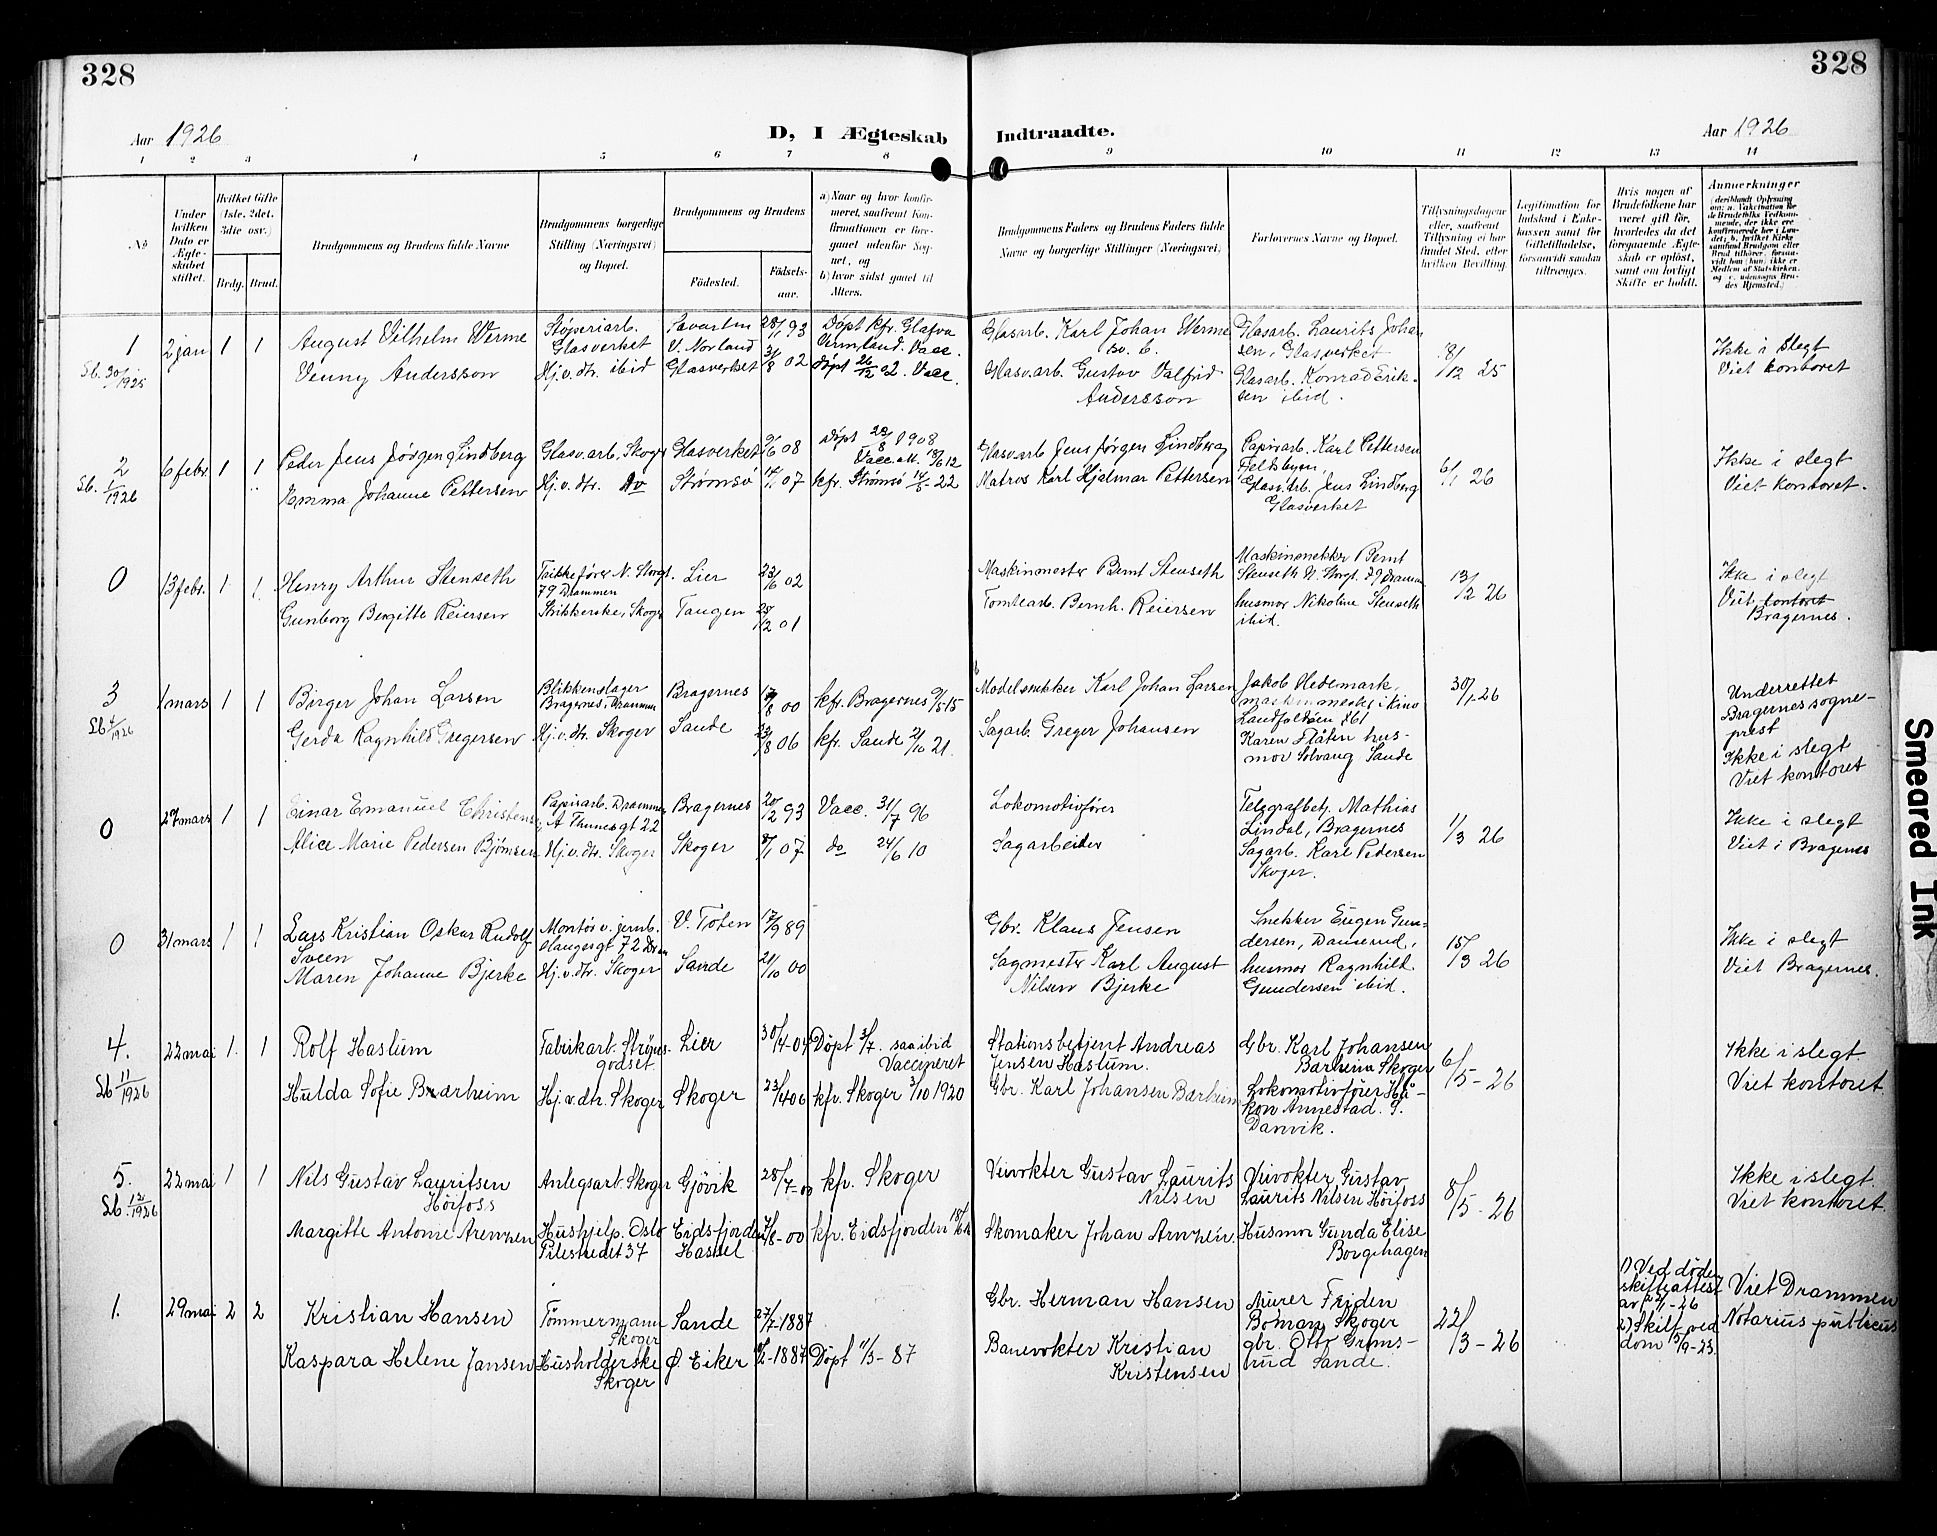 328
328
Aar 1926
D, I Ægteskab Indtraadte.
Aar 1926
1 2 3 4 5 6 7 8 9 10 11 12 13 14
No
Under hvilken Dato er Ægteskabet stiftet.
Hvilket Gifte (1ste. 2det. 3die osv.)
Brdg. Brud.
Brudgommens og Brudens fulde Navne
Brudgommens borgerlige Stilling (Næringsvei) og Bopæl.
Brudgommens og Brudens
Födested.
Födselsaar.
a) Naar og hvor konfirmeret, saafremt Konfirmationen er foregaaet udenfor Sognet, og
b) hvor sidst gaaet til Alters.
Brudgommens Faders og Brudens Faders fulde Navne og borgerlige Stillinger (Næringsvei)
Forlovernes Navne og Bopæl.
Tillysningsdagene eller, saafremt Tillysning ei har fundet Sted, efter hvilken Bevilling.
Legitimation for Indskud i Enkekassen samt for Giftetilladelse, forsaavidt saadan tiltrænges.
Hvis nogen af Brudefolkene har været gift för, hvorledes da det foregaaende Ægteskab er oplöst, samt om lovligt Skifte er holdt.
Anmerkninger
1
Sb. 30/1925
2 jan 1 1
August Vilhelm Werme
Venny Andersson
Støperiarb.
Glasverket
Hj.v.dtr. ibid
V. Norland
Glasverket
28/11 93
31/8 02
Døpt kfr. Glafva
Vermland. Vacc.
Døpt 26/12 02. Vacc.
Glasarb. Karl Johan Werme
Glasv.arb. Gustav Valfrid
Andersson
Glasarb. Laurits Johan
sen, Glasverket
Glasarb. Konrad Erik-
sen ibid.
8/12 25
Ikke i slegt
Viet kontoret
2
Sb. 1/1926
6 febr. 1 1
Peder Jens Jörgen Lindberg
Emma Johanne Pettersen
Glasv.arb. Skoger
Hj.v.dtr. do
Glasverket
Strømsö
9/6 08
17/1 07
Døpt 23/8 1908
Vacc.att. 18/6 12
kfr. Strømsö 14/5 22
Glasv.arb Jens Jørgen Lindberg
Matros Karl Hjalmar Pettersen
Papirarb. Karl Pettersen
Glasv.arb. Jens Lindberg
Glasverket
6/1 26
Ikke i slegt
Viet kontoret.
0
13 febr. 1 1
Henry Arthur Stenseth
Gunborg Bergitte Reiersen
N. Storgt.
79 Drammen
Strikkerske, Skoger
Lier
Tangen
23/6 02
28/12 01
Maskinmester Bernt Stenseth
Tomtearb. Bernh. Reiersen
Maskinsnekker Bernt
Stenseth N. Storgt. 79 Dramm
husmor Nikoline Stenseth
ibid.
13/2 26
Ikke i slegt
Viet kontoret
Bragernes.
3
Sb 4/1926
1 mars 1 1
Birger Johan Larsen
Gerda Ragnhild Gregersen
Blikkenslager
Bragernes, Drammen
Hj.v.dtr. Skoger
Bragernes
Sande
17/8 00
23/8 06
kfr. Bragernes 9/5-15
kfr. Sande 2/10 21.
Modelsnekker Karl Johan Larsen
Sagarb. Greger Johansen
Jakob Hedemark,
maskinmester i kino
Landfaldöen 261
Karen Flåten hus-
mor Solvang Sande
30/1-26
Underrettet
Bragernes sogne-
prest
Ikke i slegt
Viet kontoret
0
27 mars 1 1
Einar Emanuel Christens
Alice Marie Pedersen Bjørnsen
Papirarb. Drammen
A Thunes gt 22
Hj.v.dtr. Skoger
Bragernes
Skoger
20/12 93
8/1 07
Vacc. 31/7 96
do 24/6 10
Lokomotivfører
Sagarbeider
Telegrafbetj. Mathias
Lindal, Bragernes
Sagarb. Karl Pedersen
Skoger.
1/3 26
Ikke i slegt
Viet i Bragernes
0
31 mars 1 1
Lars Kristian Oskar Rudolf
Sveen
Maren Johanne Bjerke
Montör v. jernb.
slangergt 72 Drm
Hj.v.dtr. Skoger
V. Toten
Sande
17/9 89
21/10 00
Gbr. Klaus Jensen
Sagmester Karl August
Nilsen Bjerke
Snekker Eugen Gun-
dersen, Danserud,
husmor Ragnhild
Gundersen ibid.
15/3 26
Ikke i slegt
Viet Bragernes.
4.
Sb 11/1926
22 mai 1. 1
Rolf Haslum
Hulda Sofie Barheim
Fabrikarb. Ströms-
godset
Hj.v.dtr. Skoger
Lier
Skoger
30/4-04
23/4 06
Döpt 3/7. saa ibid
Vaccineret
kfr. Skoger 3/10 1920
Stationsbetjent Andreas
Jensen Haslum.
Gbr. Karl Johansen Barheim
Gbr. Karl Johansen
Barheim Skoger
Lokomotivförer Hå-
kon Annestad. 9.
Danvik.
6/5-26
Ikke i slegt.
Viet kontoret.
5.
Sb. 12/1926
22 mai 1 1
Nils Gustav Lauritsen
Höifoss
Margitte Antonie Arentzen
Anlegsarb. Skoger
Hushjelp. Oslo
Pilestredet 37
Gjövik
Eidsfjorden
Hassel
28/7-00
7/8-00
kfr. Skoger
kfr. Eidsfjorden
Veivokter Gustav Laurits
Nilsen
Skomaker Johan Arntzen.
Veivokter Gustav
Laurits Nilsen Höifoss
Husmor Gunda Elise
Borgehagen
8/5-26
Ikke i slegt.
Viet kontoret.
1.
29 mai 2 2
Kristian Hansen
Kaspara Helene Jansen
Tömmermann
Skoger
Husholderske
Skoger
Sande
Ø. Eiker
27/7-1887
1887
Döpt 11/3-87
Gbr. Herman Hansen
Banevokter Kristian
Kristensen
Murer Friden
Boman Skoger
gbr. Otto Grims-
rud Sande.
22/3-26
1) Ved döden
skifteattest
av 22/1-26
2) Skilt ved
dom 15/9-23.
Viet Drammen
Notarius publicus
Smeared Ink